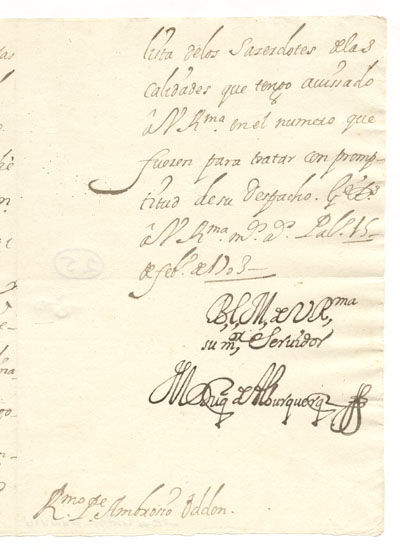 lista delos Sacerdotes delas
calidades que tengo avissado
â V Rma. en el numero que
fueren para tratar con promp
titud desu Despacho. Gde Ds.
â V Rma. ms. as. Pal.o 15
de feb.o de 1703
B,L,M, de V Rma
su mor. e Servidor
M Duq de Alburquerq
Rmo Pe. Ambrosio Oddon.